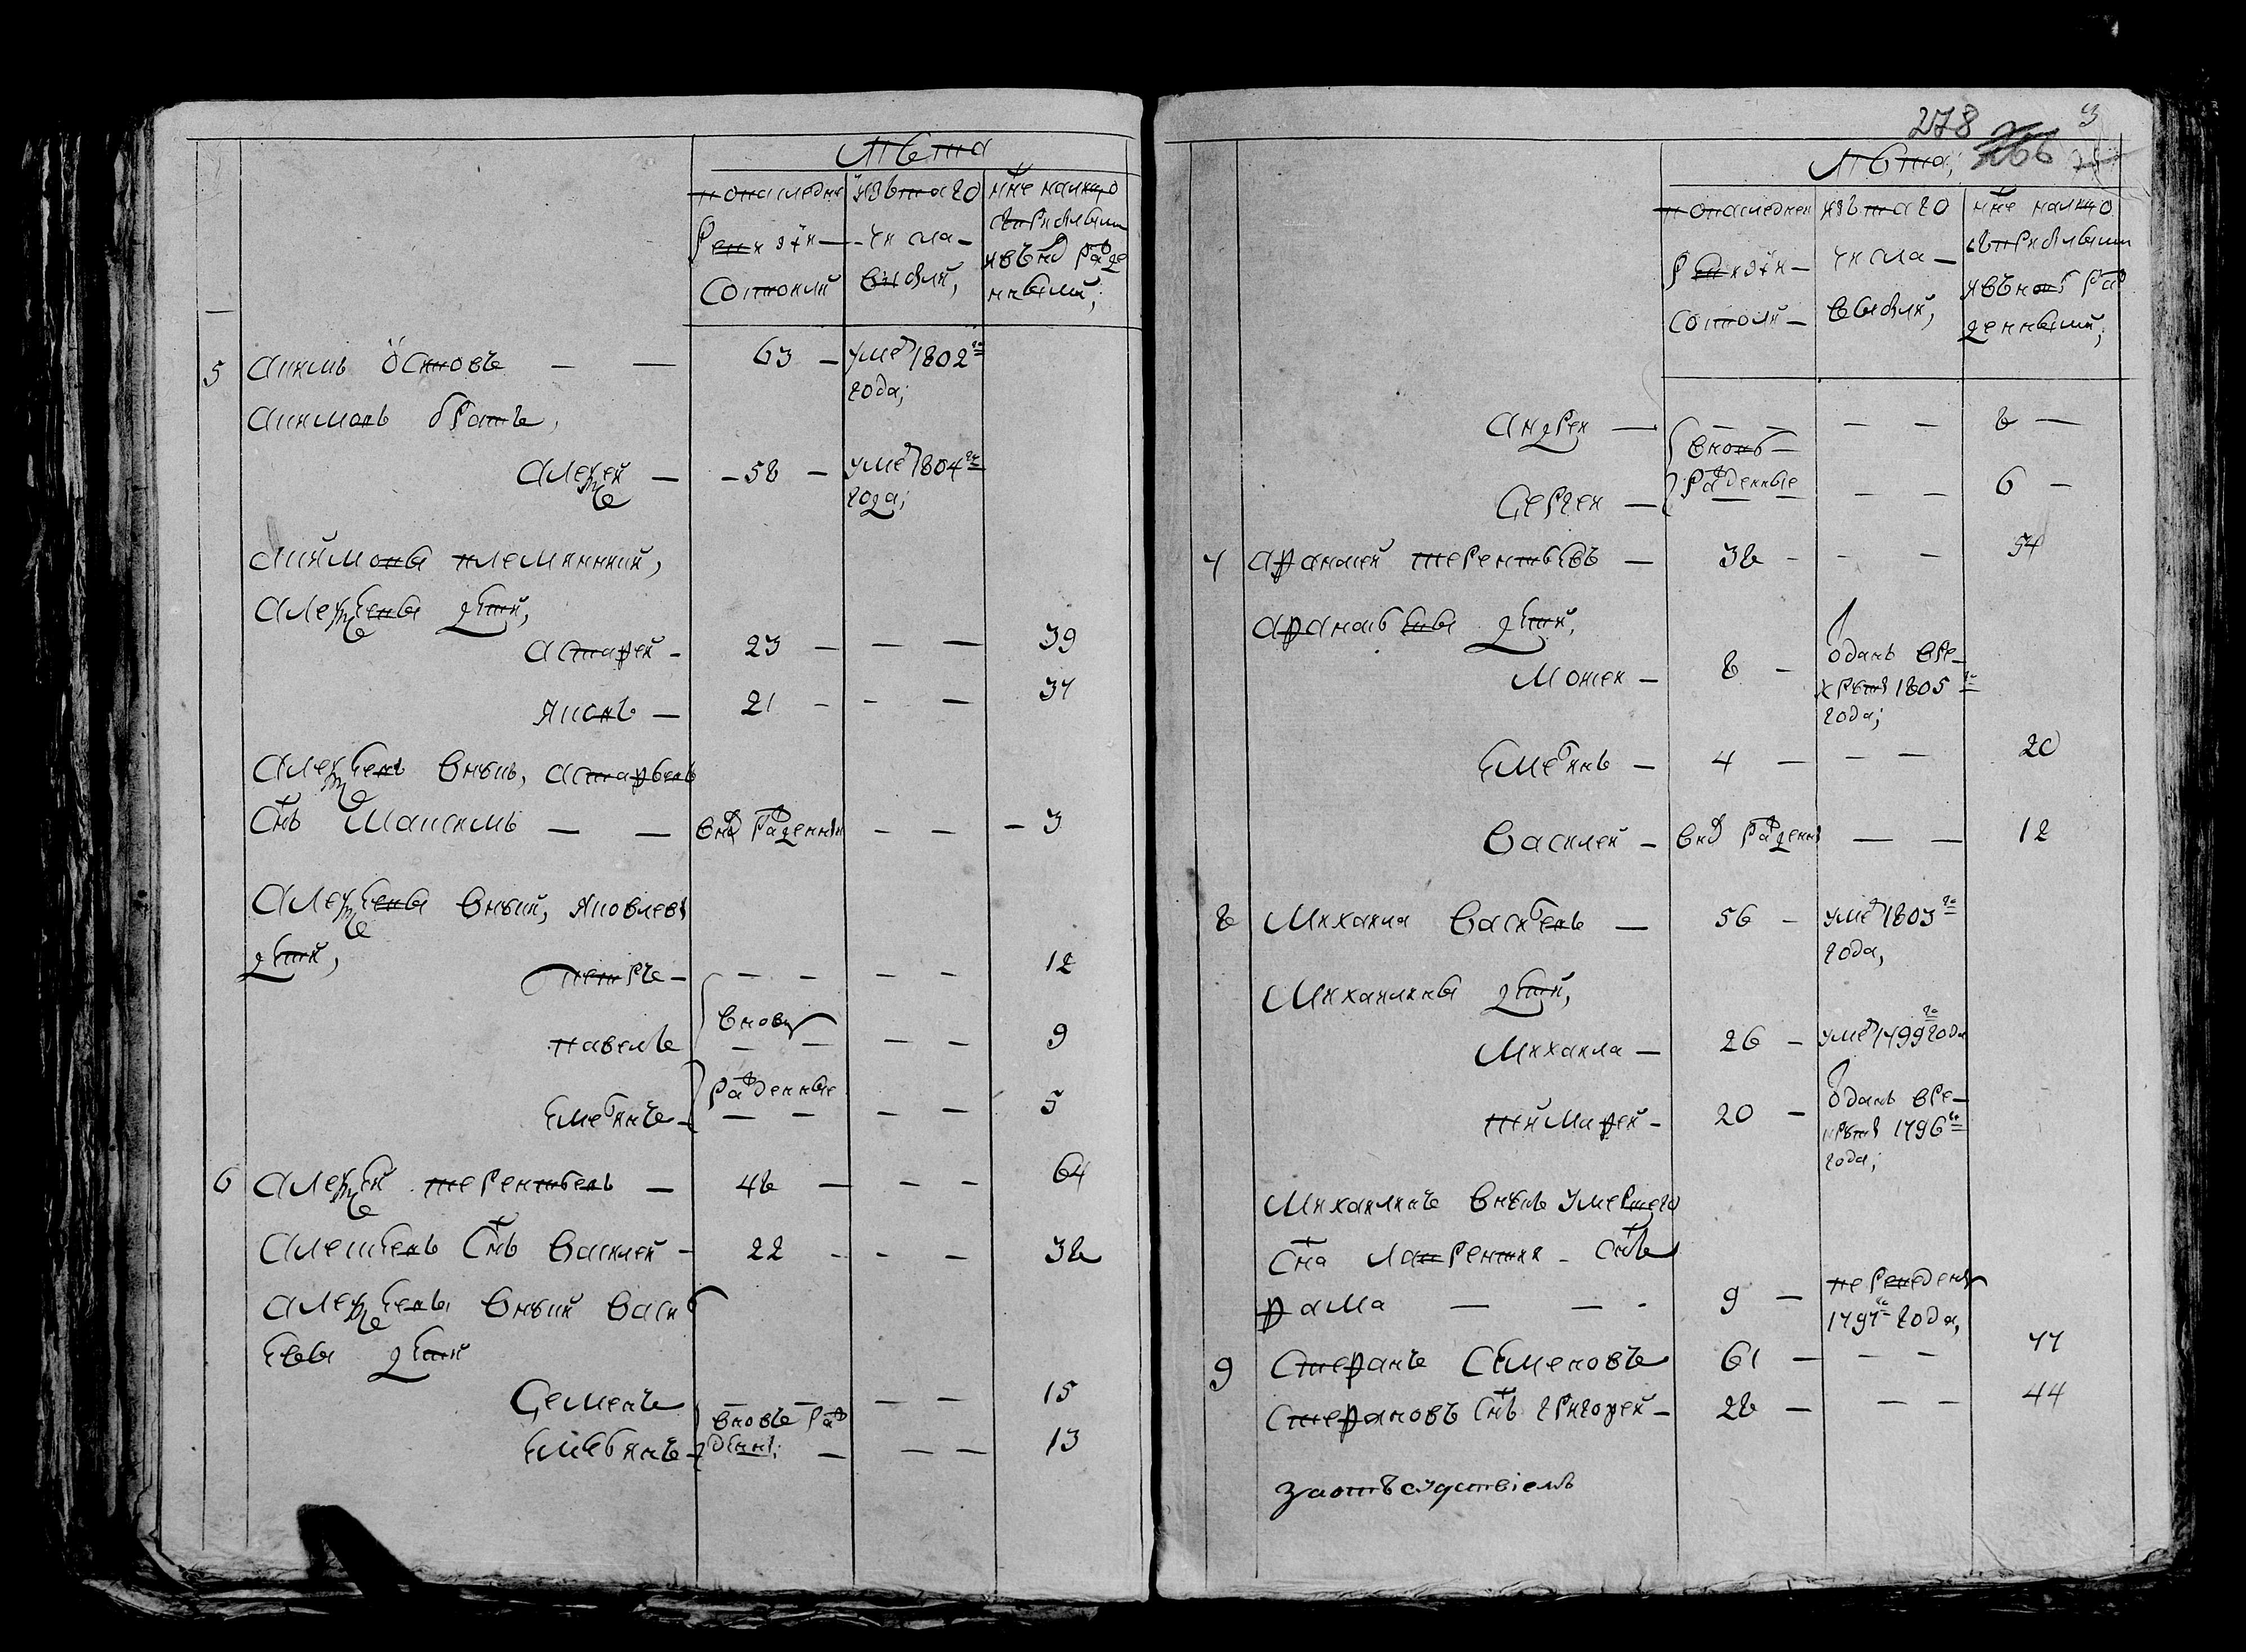 Лѣта
попоследней
Ревизіи
Состояли
изътаго
числа
выбыли,
нне налицо
съприбылыми
ивънов рожде
нными;
5 Акимъ Осиповъ — — 63 — умер 1802го
года;
Акимовъ братъ,
Алексей — — 58 — умер 1804го
года;
Акимовы племянники,
Алексеевы дети,
Астафей — 23 — — — 39
Яковъ — 21 — — — 37
Алексеевъ внукъ, Астафьевъ
Снъ Максимъ — — внов рожденны — — — 3
Алексеевы внуки, Яковлевы
дети,
Петръ — — — — — 12
вновь
Павелъ — — — — 9
рожденные
Емельянъ — — — — — 5
6 Алексей Терентьевъ — 48 — — — 64
Алексеевъ Снъ Василей — 22 — — — 38
Алексеевы внуки Василь
евы дети
Семенъ — — — — 15
вновь рож
денны;
Емельянъ — — — — 13
278 266 3
Лѣта;
попоследней
Ревизіи —
Состояли —
изътаго
числа —
выбыли,
нне налицо
съприбылыми
ивъновь рож
денными;
Андрей — — — — — 8 —
вновь —
рожденные
Сергей — — — — — 6 —
7 Афанасей Терентьевъ — 38 — — — 54
Афанасьевы дети,
Мосей — 8 — отданъ вре—
круты 1805го
года;
Емельянъ — 4 — — — 20
Василей — внов рожденны — — 12
8 Михаила Васильевъ — 56 — умер 1803го
года,
Михаилины дети,
Михаила — 26 — умер 1799го года
Тимофей — 20 — отданъ вре—
круты 1796го
года;
Михаилинъ внукъ умершего
Сна Лаврентия — Снъ
Фома — — — 9 — переведенъ
1797го года,
9 Стефанъ Семеновъ 61 — — — 77
Стефановъ Снъ Григорей — 28 — — — 44
заотъсудствіемъ